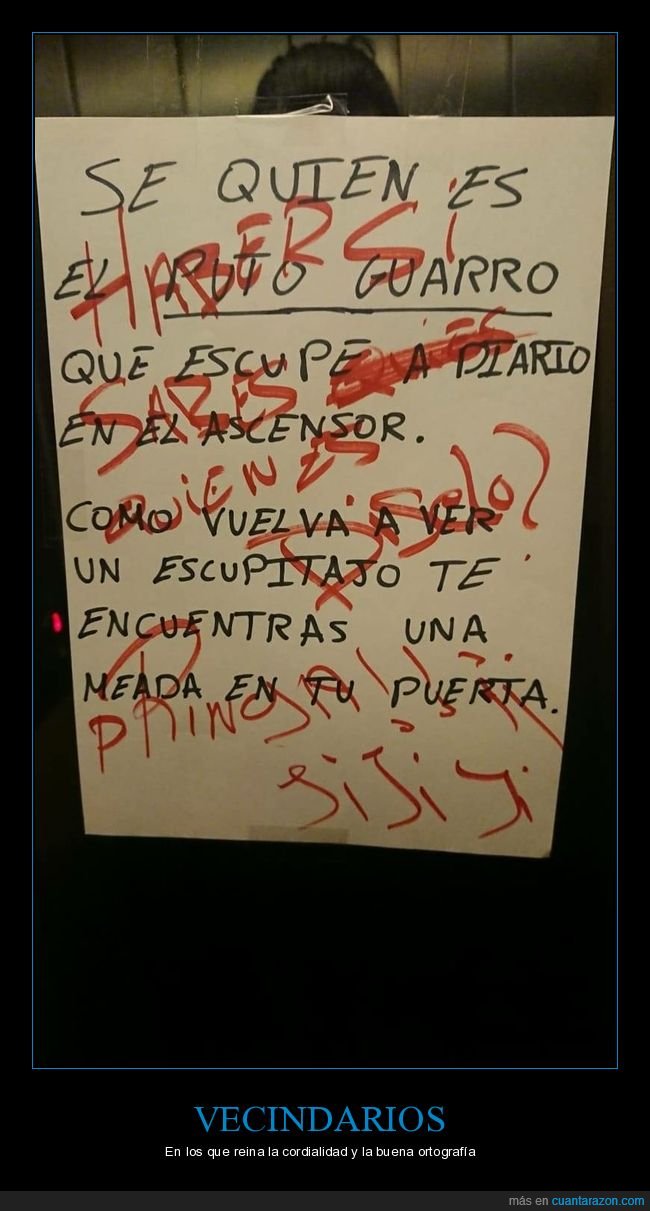 SE QUIEN ES
EL PUTO GUARRO
QUE ESCUPE A DIARIO
EN EL ASCENSOR.
COMO VUELVA A VER
UN ESCUPITAJO TE
ENCUENTRAS UNA
MEADA EN TU PUERTA.
HABER Si
SABES
QUIEN ES
jiji ji
VECINDARIOS
En los que reina la cordialidad y la buena ortografía
más en cuantarazon.com